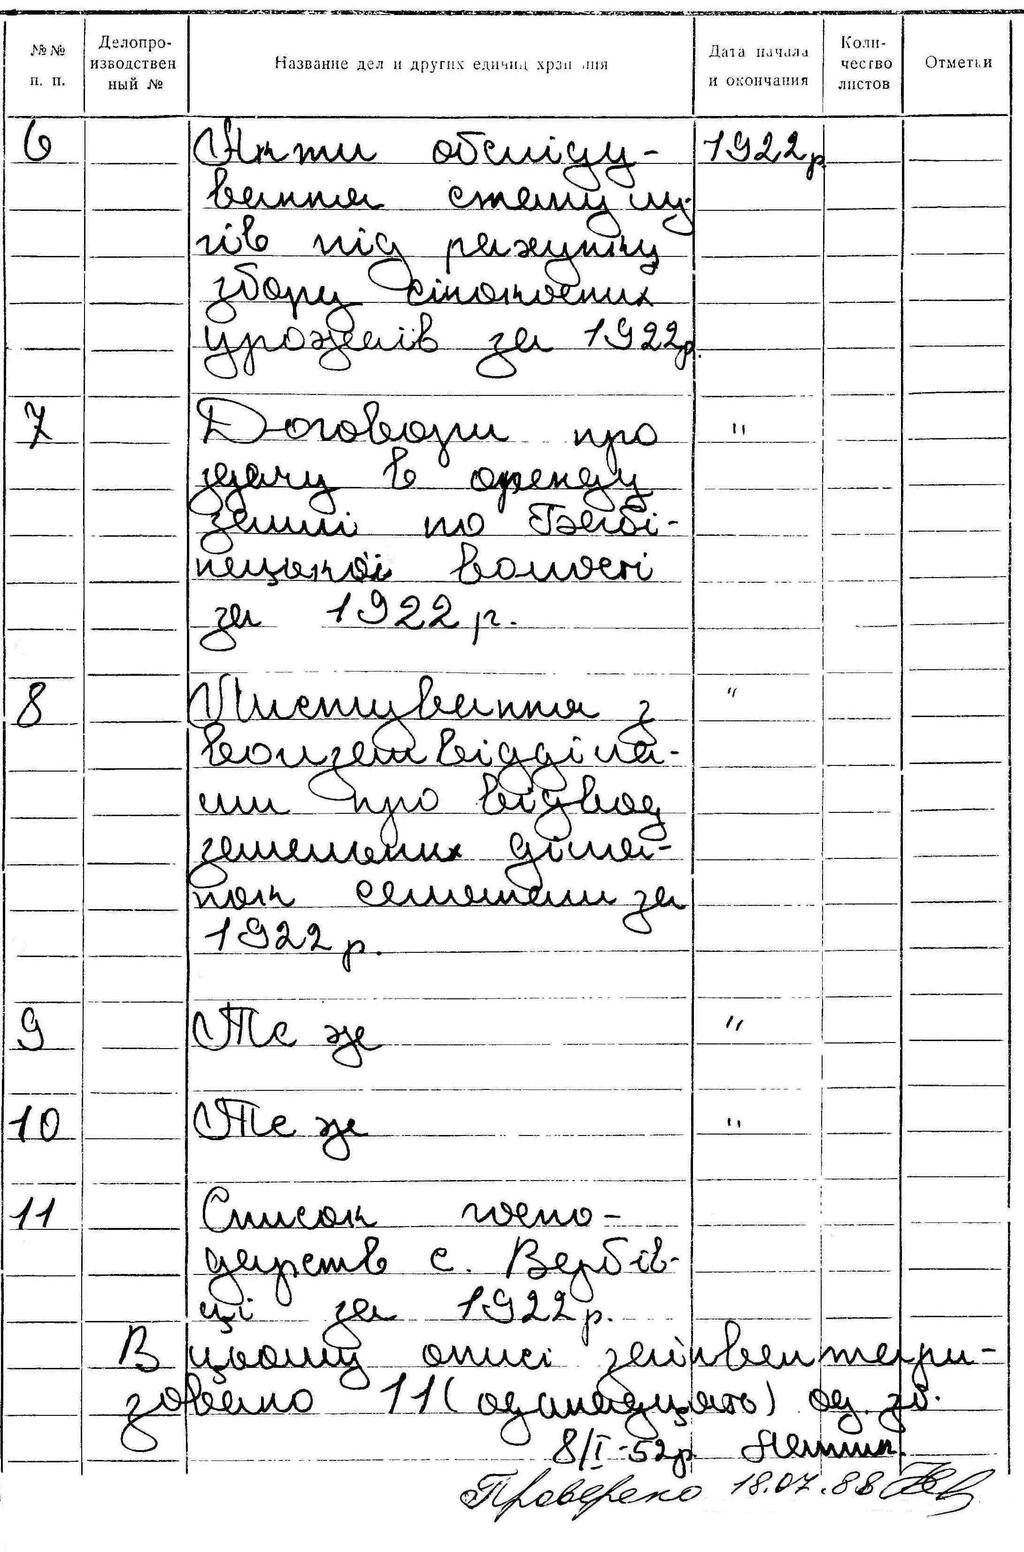 №№ п. п.
Делопро-
изводствен
ный №
Название дел и других единиц хранения
Дата начала
и окончания
Коли-
чество
листов
Отметки
6 Акти обсліду- 1922р.
вання стану лу-
гів під рахунку
збору сінокосних
урожаїв за 1922р.
7 Договори про "
здачу в оренду
землі по
нецької волості
за 1922 р.
8 Листування з "
волземвідділа-
ми про відвод
земельних діля-
нок селянам за
1922 р.
9 Те же "
10 Те же "
11 Список госпо-
дарств с. Вербів-
ці за 1922 р.
В цьому описі заінвентари-
зовано 11 (одинадцять) од. зб.
8/I-52р
Проверено 18.07.88